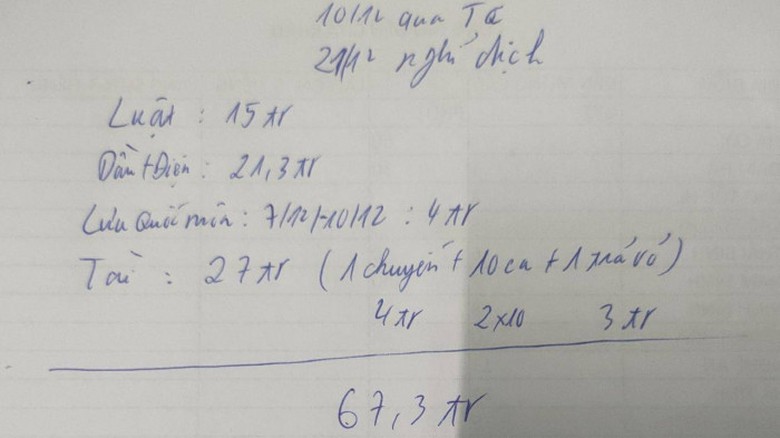 10/12 qua Tá
21/12 nghỉ dịch
Luật : 15 tr
Dầu + Điện : 21,3 tr
Lưu Quốc mãn : 7/12 - 10/12 : 4 tr
Tài : 27 tr (1 chuyến + 10 ca + 1 trả vỏ)
4 tr 2x10 3 tr
67,3 tr